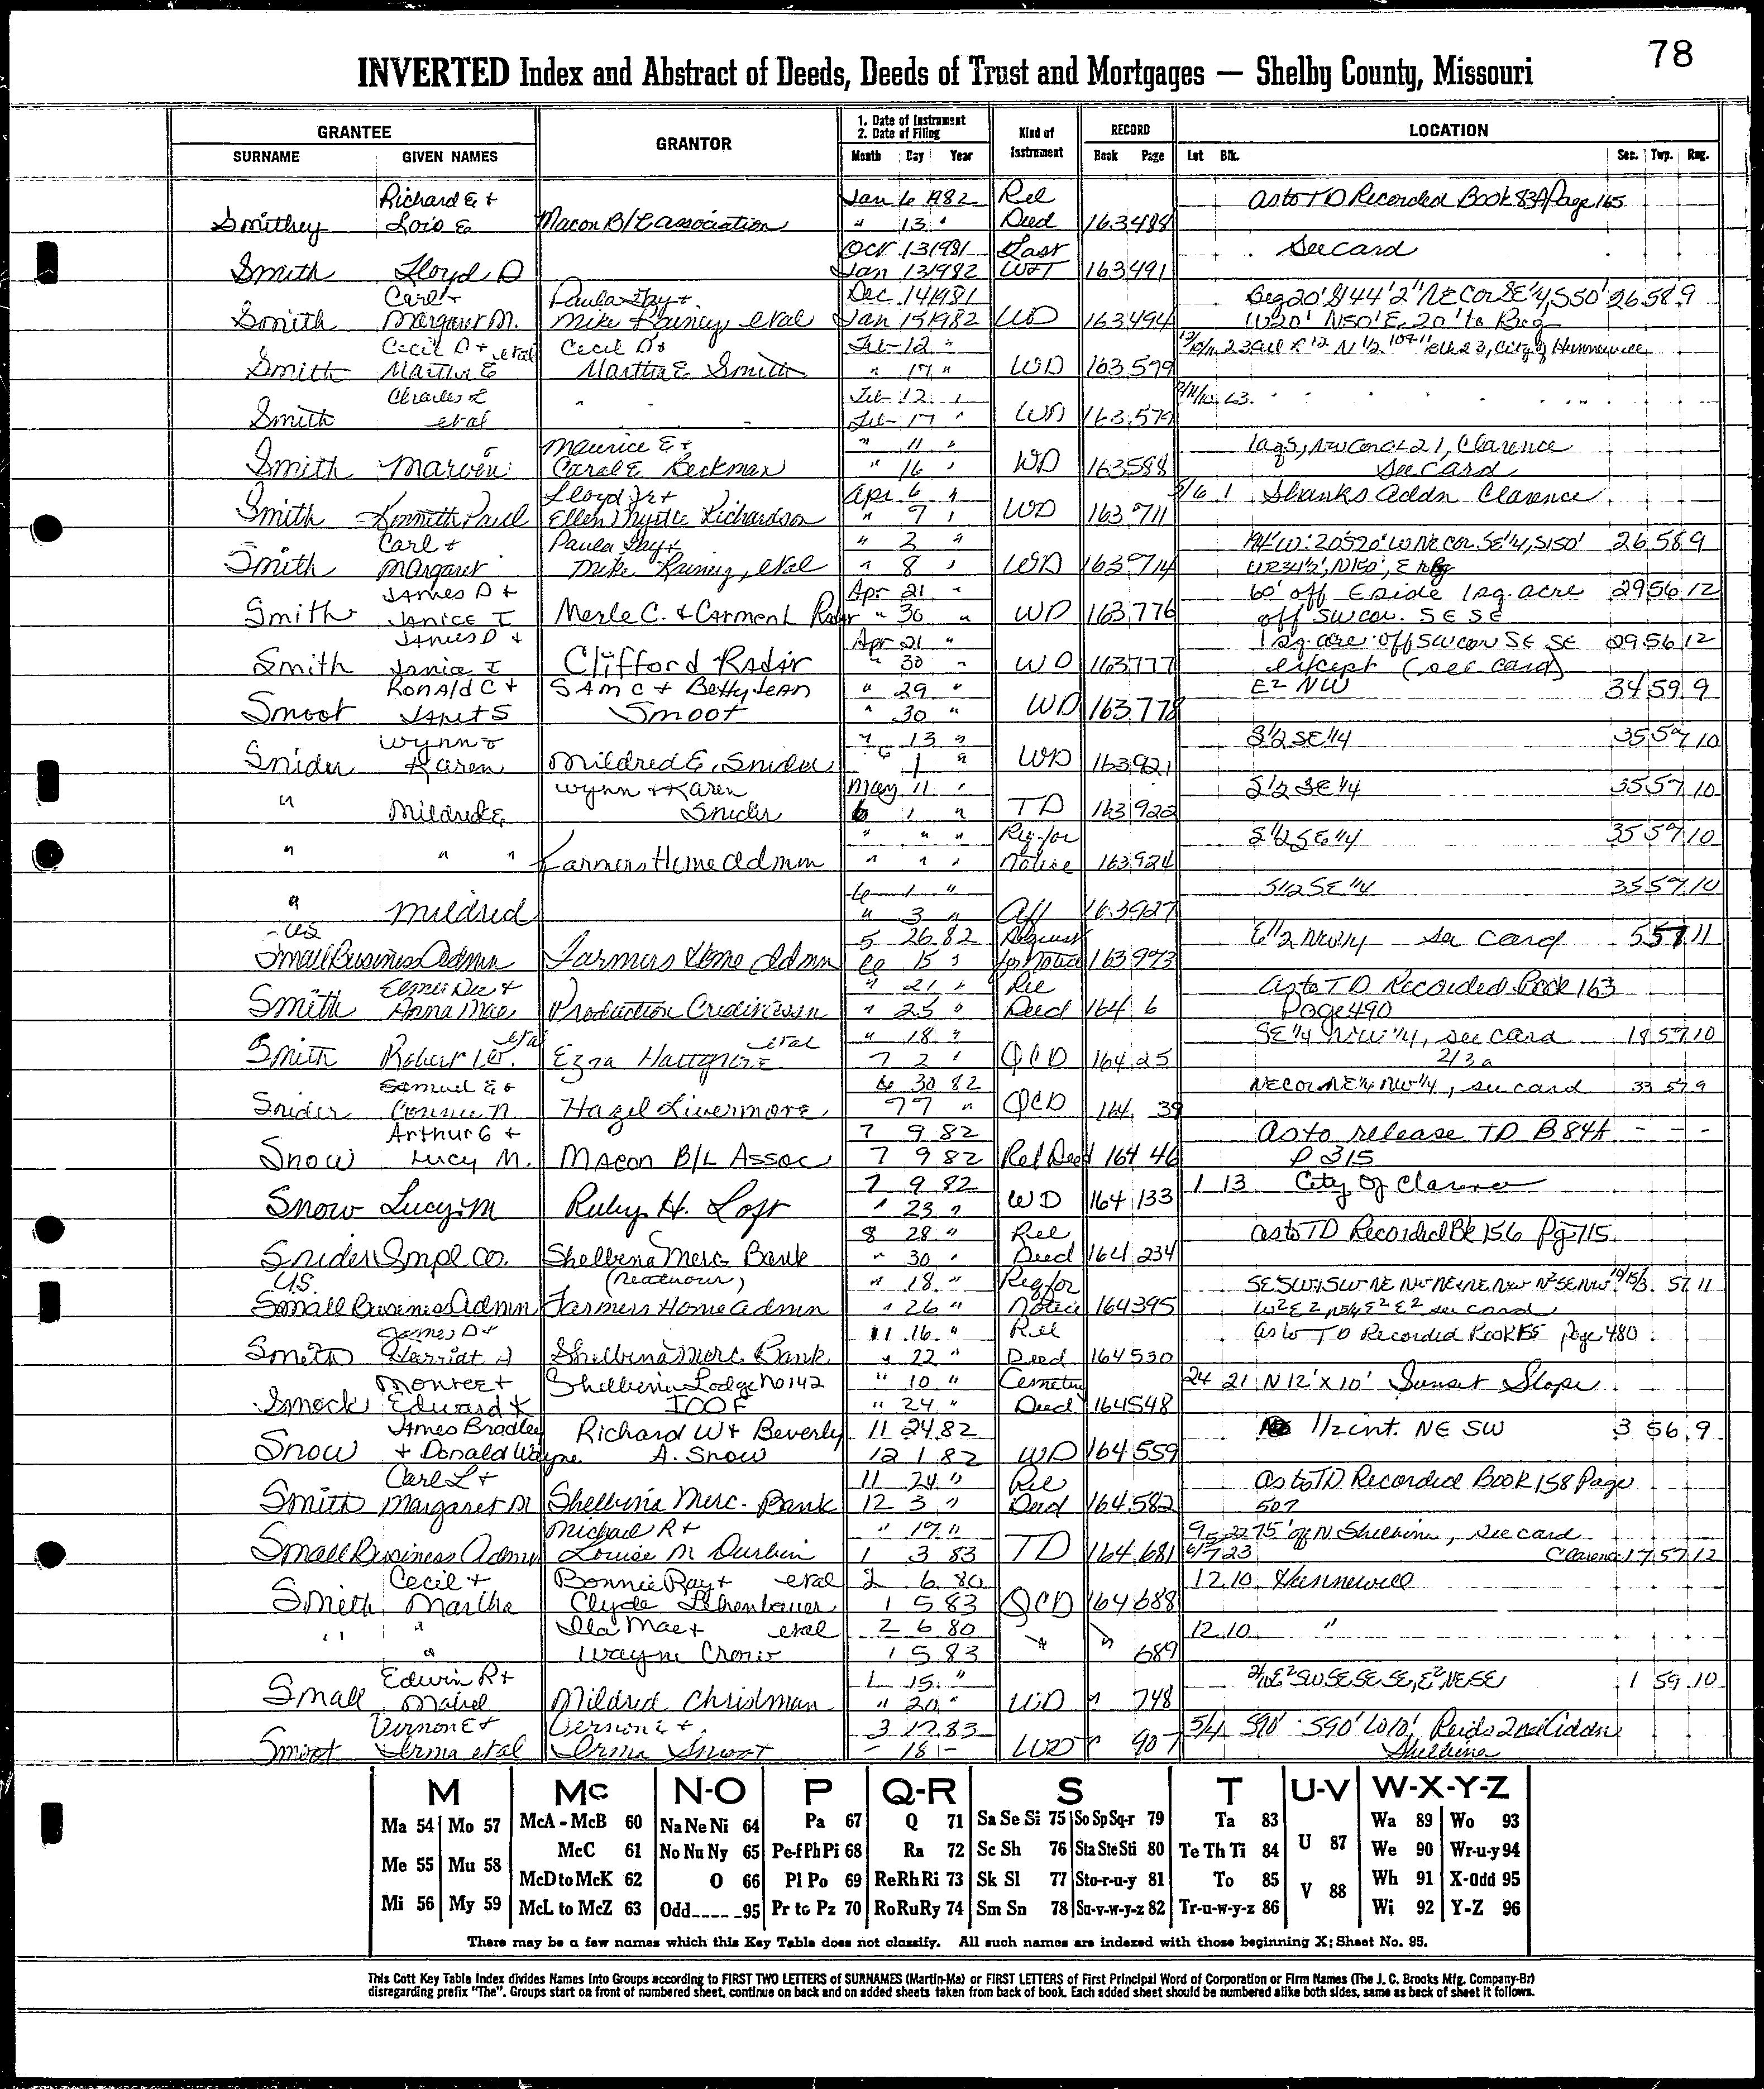 78
INVERTED Index and Abstract of Deeds, Deeds of Trust and Mortgages — Shelby County, Missouri
GRANTEE GRANTOR 1. Date of Instrument 2. Date of Filing Kind of Instrument RECORD LOCATION
SURNAME GIVEN NAMES Month Day Year Book Page Lot Blk. Sec. Twp. Rng.
Richard E + Jan 6 1982 Rel As to TD Recorded Book 83A Page 165
Smithey Lois E Macon B/L Association " 13 " Deed 163 488
Oct 13 1981 Last See card
Smith Lloyd D Jan 13 1982 W&T 163 491
Carl + Paula Gay + Dec 14 1981 Beg 20' 44' 2" NE Cor SE 1/4, S50' 26 58 9
Smith Margaret M. Mike Rainey, etal Jan 15 1982 WD 163 494 W20' N50' E. 20' to Beg
Cecil D + etal Cecil D + Feb 12 " N 1/2 Blk 23, City of Hunnewell
Smith Martha E Martha E Smith " 17 " WD 163 579
Charles L " " " Feb 12 "
Smith etal Feb 17 " WD 163 579
Maurice E + " 11 " NW Cor 21, Clarence
Smith Marvin Carol E Beckman " 16 " WD 163 588 See Card
Lloyd Jr + Apr 6 " 5/6 1 Shanks Addn Clarence
Smith Kenneth Paul Ellen Myrtle Richardson " 9 " WD 163 711
Carl + Paula Gay + " 2 " W NE cor SE 1/4, S150' 26 58 9
Smith Margaret Mike Rainey, etal " 8 " WD 163 714 N150', E to Beg
James D + Apr 21 " 60' off E side 1 sq. acre 29 56 12
Smith Janice I Merle C. + Carment Rader " 30 " WD 163 776 off SW cor. SE SE
James D + Apr 21 " 1 sq. acre off SW cor SE SE 29 56 12
Smith Janice I Clifford Rader " 30 " WD 163 777 except (see card)
Ronald C + Sam C + Betty Jean " 29 " E2 NW 34 59 9
Smoot Janet S Smoot " 30 " WD 163 778
Wynn + " 13 " S 1/2 SE 1/4 35 57 10
Snider Karen Mildred E. Snider 6 1 " WD 163 921
Wynn + Karen May 11 " S 1/2 SE 1/4 35 57 10
" Mildred E Snider 6 1 " TD 163 922
" " " Req for S 1/2 SE 1/4 35 57 10
" " " Farmers Home Admn " " " Notice 163 924
6 1 " S 1/2 SE 1/4 35 57 10
" Mildred " 3 " Aff 163 927
US 5 26 82 Request E 1/2 NW 1/4 see card 5 57 11
Small Business Admn Farmers Home Admn 6 15 " for Notice 163 973
Elmer Dee + " 21 " Rel As to TD Recorded Book 163
Smith Anna Mae Production Credit Assn " 25 " Deed 164 6 Page 490
etal etal " 18 " SE 1/4 NW 1/4, see card 18 57 10
Smith Robert W. Ezra 7 2 " QCD 164 25 2/3 a
Samuel E + 6 30 82 NE Cor NE 1/4 NW 1/4, see card 33 57 9
Snider Connie N Hazel Livermore 7 7 " QCD 164 39
Arthur G + 7 9 82 As to release TD B 84A - - -
Snow Lucy M. Macon B/L Assoc 7 9 82 Rel Deed 164 46 P 315
7 9 82 1 13 City of Clarence
Snow Lucy M Ruby H. Loft " 23 " WD 164 133
8 28 " Rel As to TD Recorded Bk 156 Pg 715
Snider Impl Co. Shelbina Merc Bank " 30 " Deed 164 234
U.S. " 18 " Req for 57 11
Small Business Admn Farmers Home Admn " 26 " Notice 164 395 see card
James D + 11 16 " Rel As to TD Recorded Book 155 Page 480
Smith Harriet Shelbina Merc. Bank " 22 " Deed 164 530
Monree + Shelbina Lodge No 142 " 10 " Cemetry 24 21 N 12' x 10' Sunset Slope
Smock Edward K IOOF " 24 " Deed 164 548
James Bradley Richard W + Beverly 11 24 82 1/2 int. NE SW 3 56 9
Snow + Donald Wayne A. Snow 12 1 82 WD 164 559
Carl L + 11 24 " Rel As to TD Recorded Book 158 Page
Smith Margaret M Shelbina Merc. Bank 12 3 " Deed 164 582 507
Michael R + " 17 " 75' of N Shelbina, see card
Small Business Admn Louise M Durbin 1 3 83 TD 164 681 Clarence 17 57 12
Cecil + Bonnie Ray + etal 2 6 80 12 10 Hunnewell
Smith Martha Clyde Lehenbauer 1 5 83 QCD 164 688
" " Ila Mae + etal 2 6 80 12 10 "
" Wayne Crow 1 5 83 " " 689
Edwin R + 1 15 " E2 SW SE SE SE, E2 NE SE 1 59 10
Small Mabel Mildred Christman " 20 " WD " 748
Vernon E + Vernon E + 3 17 83 5/4 S90' S90' W10' Reids 2nd Addn
Smoot Irma etal Irma Smoot - 18 - WD " 907 Shelbina
M Mc N-O P Q-R S T U-V W-X-Y-Z
Ma 54 Mo 57 McA - McB 60 Na Ne Ni 64 Pa 67 Q 71 Sa Se Si 75 So Sp Sq-r 79 Ta 83 U 87 Wa 89 Wo 93
Me 55 Mu 58 McC 61 No Nu Ny 65 Pe-f Ph Pi 68 Ra 72 Sc Sh 76 Sta Ste Sti 80 Te Th Ti 84 V 88 We 90 Wr-u-y 94
McD to McK 62 O 66 Pl Po 69 Re Rh Ri 73 Sk Sl 77 Sto-r-u-y 81 To 85 Wh 91 X-Odd 95
Mi 56 My 59 McL to McZ 63 Odd_____95 Pr to Pz 70 Ro Ru Ry 74 Sm Sn 78 Su-v-w-y-z 82 Tr-u-w-y-z 86 Wi 92 Y-Z 96
There may be a few names which this Key Table does not classify. All such names are indexed with those beginning X; Sheet No. 95.
This Cott Key Table Index divides Names into Groups according to FIRST TWO LETTERS of SURNAMES (Martin-Ma) or FIRST LETTERS of First Principal Word of Corporation or Firm Names (The J. C. Brooks Mfg. Company-Br)
disregarding prefix "The". Groups start on front of numbered sheet, continue on back and on added sheets taken from back of book. Each added sheet should be numbered alike both sides, same as back of sheet it follows.